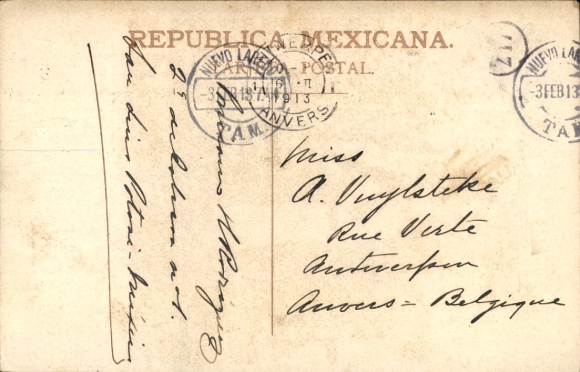 REPUBLICA MEXICANA.
TARJETA POSTAL.
NUEVO LAREDO
3 FEB 13 7 AM
TAM.
1913
ANVERS
217
NUEVO LAREDO
3 FEB 13
TAM.
Miss
A. Vuylsteke
Rue Verte
Antwerpen
Anvers = Belgique
Rodriguez
2a de
San Luis Potosi